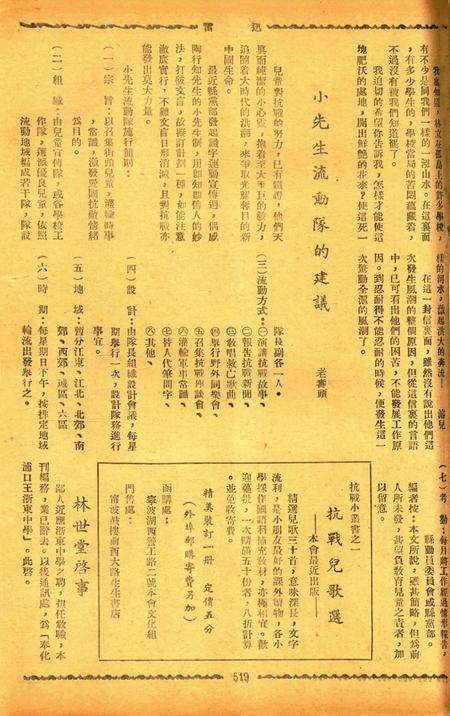 迅雷
有不少是同我們一樣的一池山水。在這裏面
，有多少學生的，學校當局的苦悶蘊藏着，
不過沒有被我們知道罷了。
我迫切的希望你告訴我，怎樣才能使這
塊肥沃的處地，開出鮮艷的花來？使這死一
樣的河水，激起洪大的奔流——
在這一封信裏面，雖然沒有說出他們這
次發生風潮的整個原因，但從這信裏的言語
中，已可看出他們的困苦，不能發展工作原
因。到忍耐得不能忍耐的時候，便發生這一
次驚動全滬的風潮了。
小先生流動隊的建議
老壽頭
兒童對抗戰的努力，已有鐵證，他們天
真而純潔的小心兒，抱着至大至巨的毅力，
追隨着大時代的洪潮，來爭取光耀奪目的新
中國生命。
最近縣黨部發起識字運動宣傳週，偶感
陶行知先生的小先生制，用即知即傳人的妙
法，打破文盲，故擬訂計劃一種，如能注意
澈底實行，不難文盲日形消滅，且對抗戰亦
能發出莫大力量。
小先生流動隊施行簡則：
（一）宗　旨：以召集街頭兒童，灌輸時事
，常識，激發愛國抗敵情緒
爲目的。
（二）組　織：由兒童宣傳隊，或各學校工
作隊，選派優良兒童，依照
流動地域編成若干隊，隊設
隊長副各一人。
（三）流動方式：㊀演講抗戰故事、
㊁報告抗戰新聞、
㊂教唱救亡歌曲、
㊃舉行野外同樂會、
㊄召集抗戰座談會、
㊅灌輸軍事常識、
㊆替人代筆問字、
㊇其他、
（四）設　計：由隊長組織設計會議，每星
期舉行一次，設計隊務進行
事宜。
（五）地　域：暫分江東、江北、北郊、南
郊、西郊、城區、六區
（六）時　期：每星期日下午，按排定地域
輪流出發舉行之。
（七）考　勤：每月將工作經過情形報告，
縣動員委員會或縣黨部。
編者按：本文所說，雖甚簡略，但爲前
人所未發，甚望負敎育兒童之責者，加
以留意。
抗戰小叢書之一
抗戰兒歌選
——本會最近出版——
精選兒歌三十首，意味深長，文字
流利，是小朋友最好的課外讀物，各小
學採作國語科補充敎材，亦極相宜。歡
迎躉批，一次購滿五十份者，八折計算
。並免收寄費。
精美裝訂一册　定價五分
（外埠郵購寄費另加）
函購處：
寧波湖西鹽工路二號本會文化組
門售處：
甯波鼓樓前西大路生生書店
林世堂啓事
鄙人近應浙東中學之聘，担任敎職，本
刊編務，業已辭去。以後通訊處，爲「奉化
浦口王浙東中學」。此啓。
519